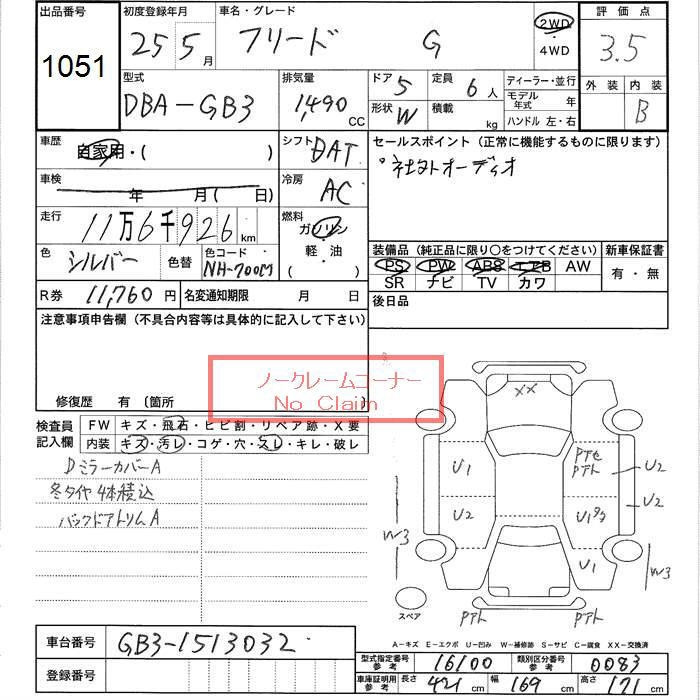 出品番号
1051
初度登録年月
25 5月
車名・グレード
フリード G
2WD
・4WD
評価点
3.5
外装 内装
B
型式
DBA-GB3
排気量
1,490 CC
ドア 5
形状 W
定員 6人
積載 kg
ディーラー・並行
モデル年式 年
ハンドル 左・右
車歴
自家用・( )
シフト DAT
セールスポイント(正常に機能するものに限ります)
車検
年 月( 日)
冷房 AC
走行
11万6千926km
燃料
ガソリン
軽・油
( )
色 シルバー 色替
色コード NH-700M
装備品(純品に限り○をつけてください)
新車保証書
PS PW ABS エアB AW
SR ナビ TV カワ
有・無
R券 11,760円
名変通知期限 月 日
後日品
注意事項申告欄(不具合内容等は具体的に記入して下さい)
ノークレームコーナー
No Claim
修復歴 有(箇所
検査員記入欄
FW キズ・飛石・ヒビ割・リペア跡・X要
内装 キズ・汚レ・コゲ・穴・スレ・キレ・破レ
Dミラーカバー A
冬タイヤ4本積込
バックドアトリム A
XX
U1
U2
U2
U2
U1
U1
W3
W3
スペア
A-キズ E-エクボ U-凹み W-補修跡 S-サビ C-腐食 XX-交換済
車台番号
GB3-1513032
登録番号
型式指定番号参考 16100
類別区分番号参考 0083
車庫証明用参考 長さ 421cm 幅 169cm 高さ 171cm